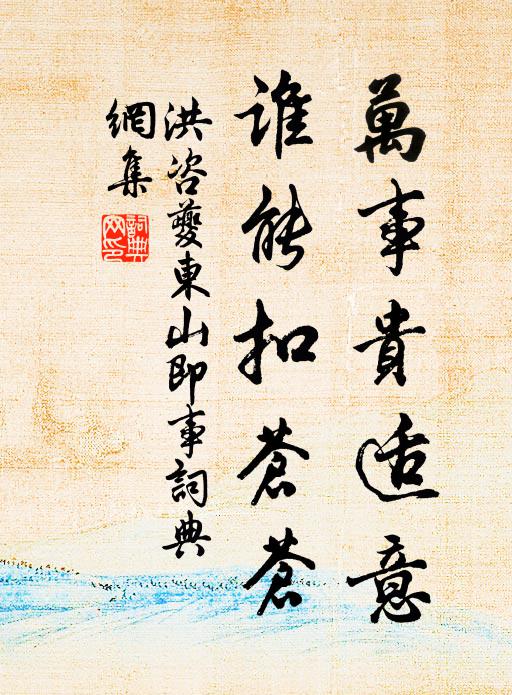 萬事貴适意
誰能扣蒼蒼
洪咨夔東山即事詞典
網集
詞典
网印